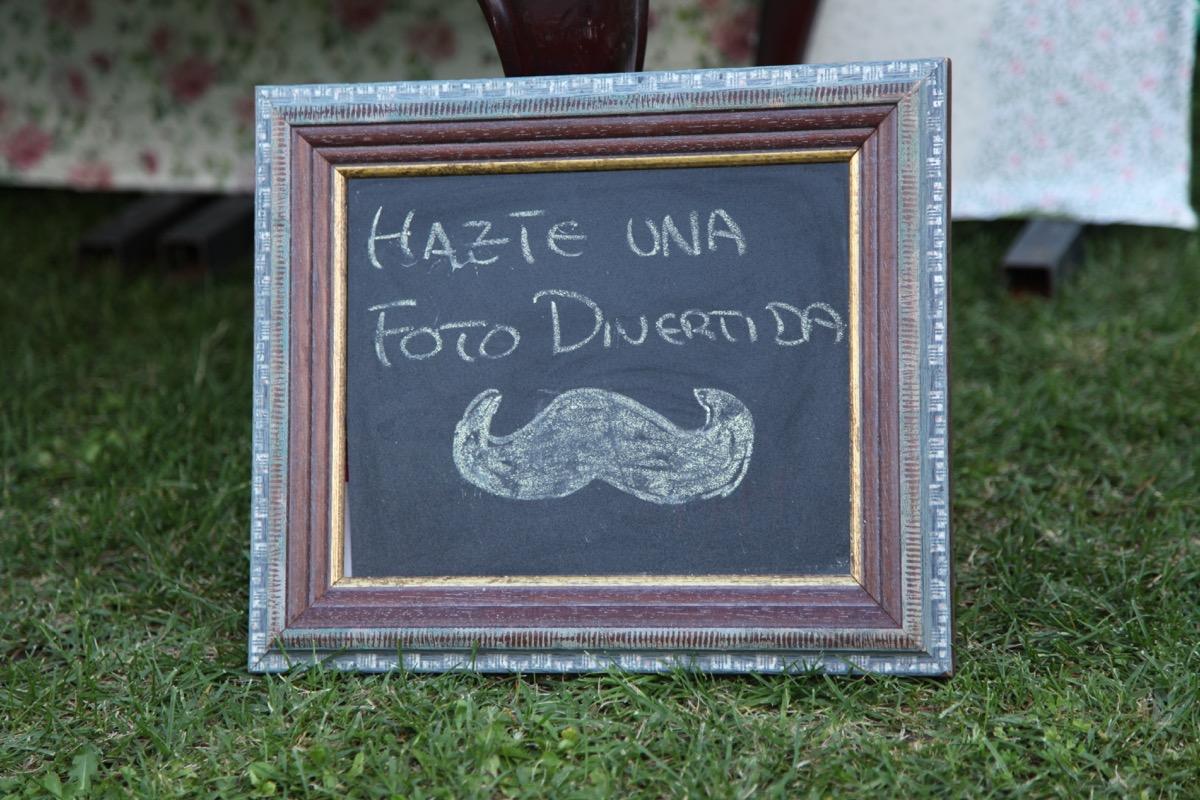 HAZTE UNA
FOTO DIVERTIDA